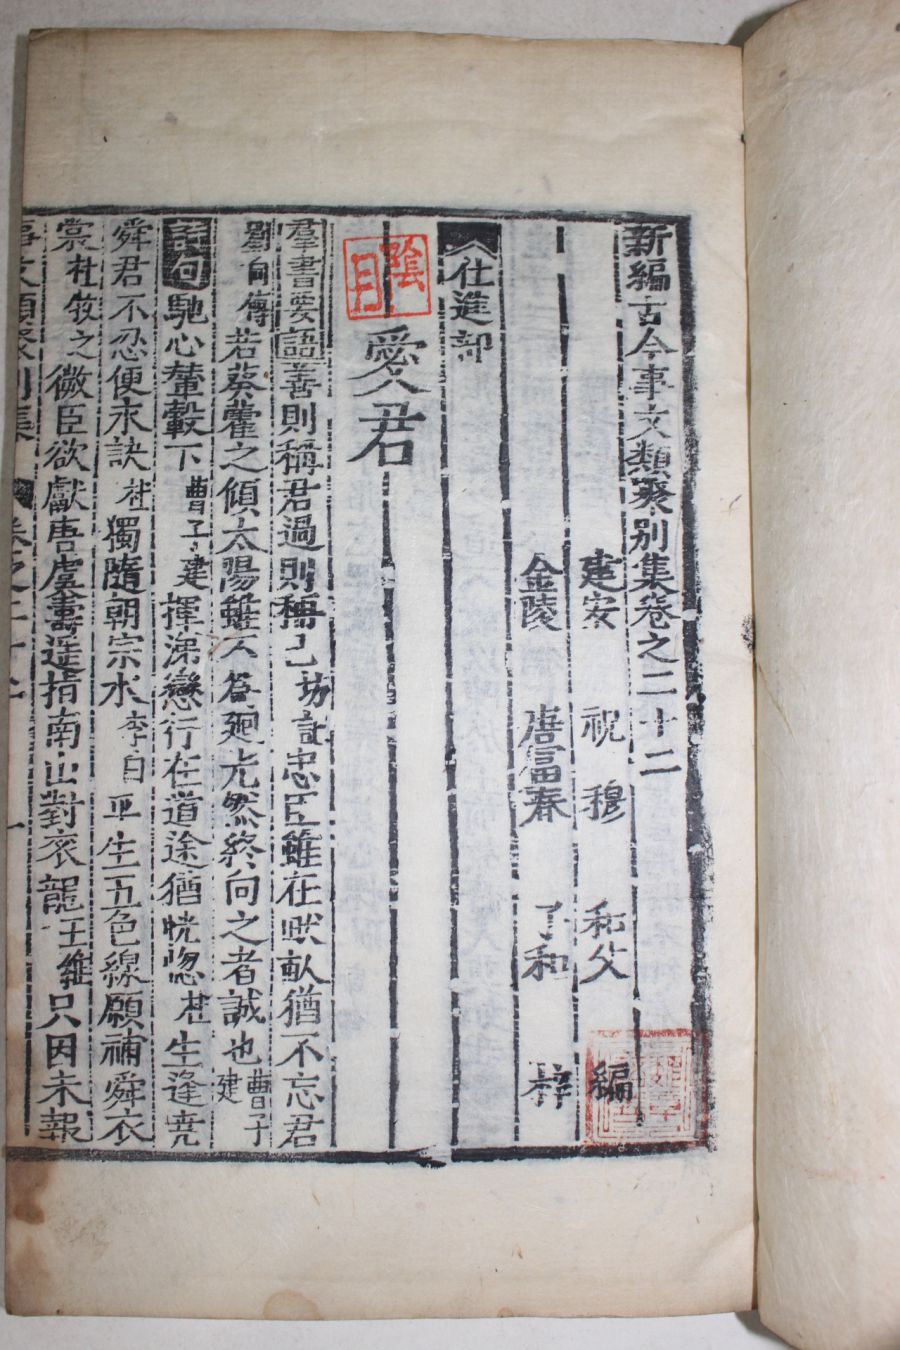 新編古今事文類聚別集卷之二十二
建安 祝 穆 和父 編
金陵 唐富春 子和 梓
仕進部
愛君
陰刻目
羣書要語善則稱君過則稱己坊記忠臣雖在畎畝猶不忘君
劉向傳若葵藿之傾太陽雖不爲廻光然終向之者誠也曹子建
古句馳心輦轂下曹子建揮涕戀行在道途猶恍惚杜生逢堯
舜君不忍便永訣杜獨隨朝宗水李白平生五色線願補舜衣
裳杜牧之微臣欲獻唐虞壽遥指南山對衮龍王維只因未報
事文類聚別集 卷之二十二 一